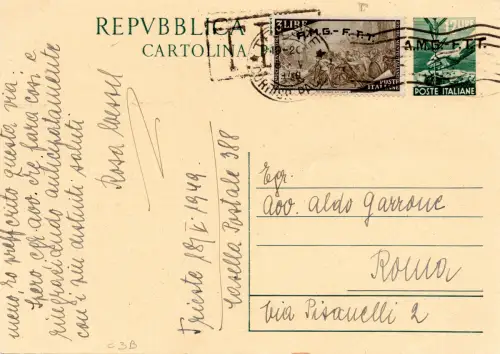 REPVBBLICA
CARTOLINA
3 LIRE
A.M.G.-F.T.T.
POSTE ITALIANE
12 LIRE
A.M.G.-F.T.T.
POSTE ITALIANE
mano ho preferito questa via.
Spero egr. avv. che farà così e
ringraziando anticipatamente
con i più distinti saluti
Rosa
Trieste 18/V. 1949.
Casella Postale 388
Egr.
Avv. Aldo Garrone
Roma
Via Pisanelli 2
C3B